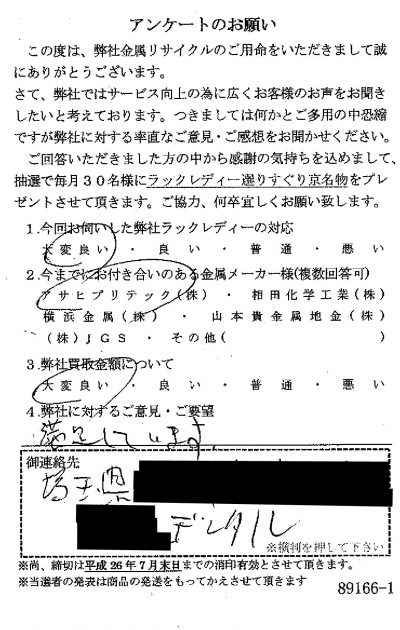 アンケートのお願い
この度は、弊社金属リサイクルのご用命をいただきまして誠
にありがとうございます。
さて、弊社ではサービス向上の為に広くお客様のお声をお聞き
したいと考えております。つきましては何かとご多用の中恐縮
ですが弊社に対する率直なご意見・ご感想をお聞かせください。
ご回答いただきました方の中から感謝の気持ちを込めまして、
抽選で毎月30名様にラックレディー選りすぐり京名物をプレ
ゼントさせて頂きます。ご協力、何卒宜しくお願い致します。
1.今回お伺いした弊社ラックレディーの対応
大変良い ・ 良い ・ 普通 ・ 悪い
2.今までにお付き合いのある金属メーカー様(複数回答可)
アサヒプリテック(株) ・ 相田化学工業(株)
横浜金属(株) ・ 山本貴金属地金(株)
(株)JGS ・ その他( )
3.弊社買取金額について
大変良い ・ 良い ・ 普通 ・ 悪い
4.弊社に対するご意見・ご要望
満足しています。
御連絡先
埼玉県
デンタル
※横判を押して下さい
※尚、締切は平成26年7月末日までの消印有効とさせて頂きます。
※当選者の発表は商品の発送をもってかえさせて頂きます
89166-1